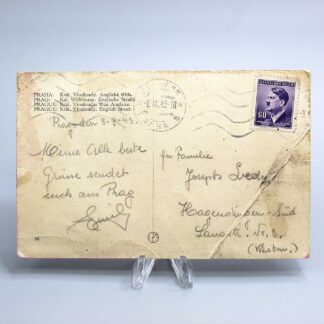 PRAHA: Král. Vinohrady. Anglická třída.
PRAG: Kgl. Weinberge. Englische Straße.
PRAGUE: Král. Vinohrady. Rue Anglaise.
PRAGUE: Král. Vinohrady. English Street.
Prag, den 8.9.43.
Meine Alle beste
Grüsse sendet
euch aus Prag
Emil
An Familie
Josef
Hagendingen-Süd
Langstr. Nr. 2
(Westm.)
60